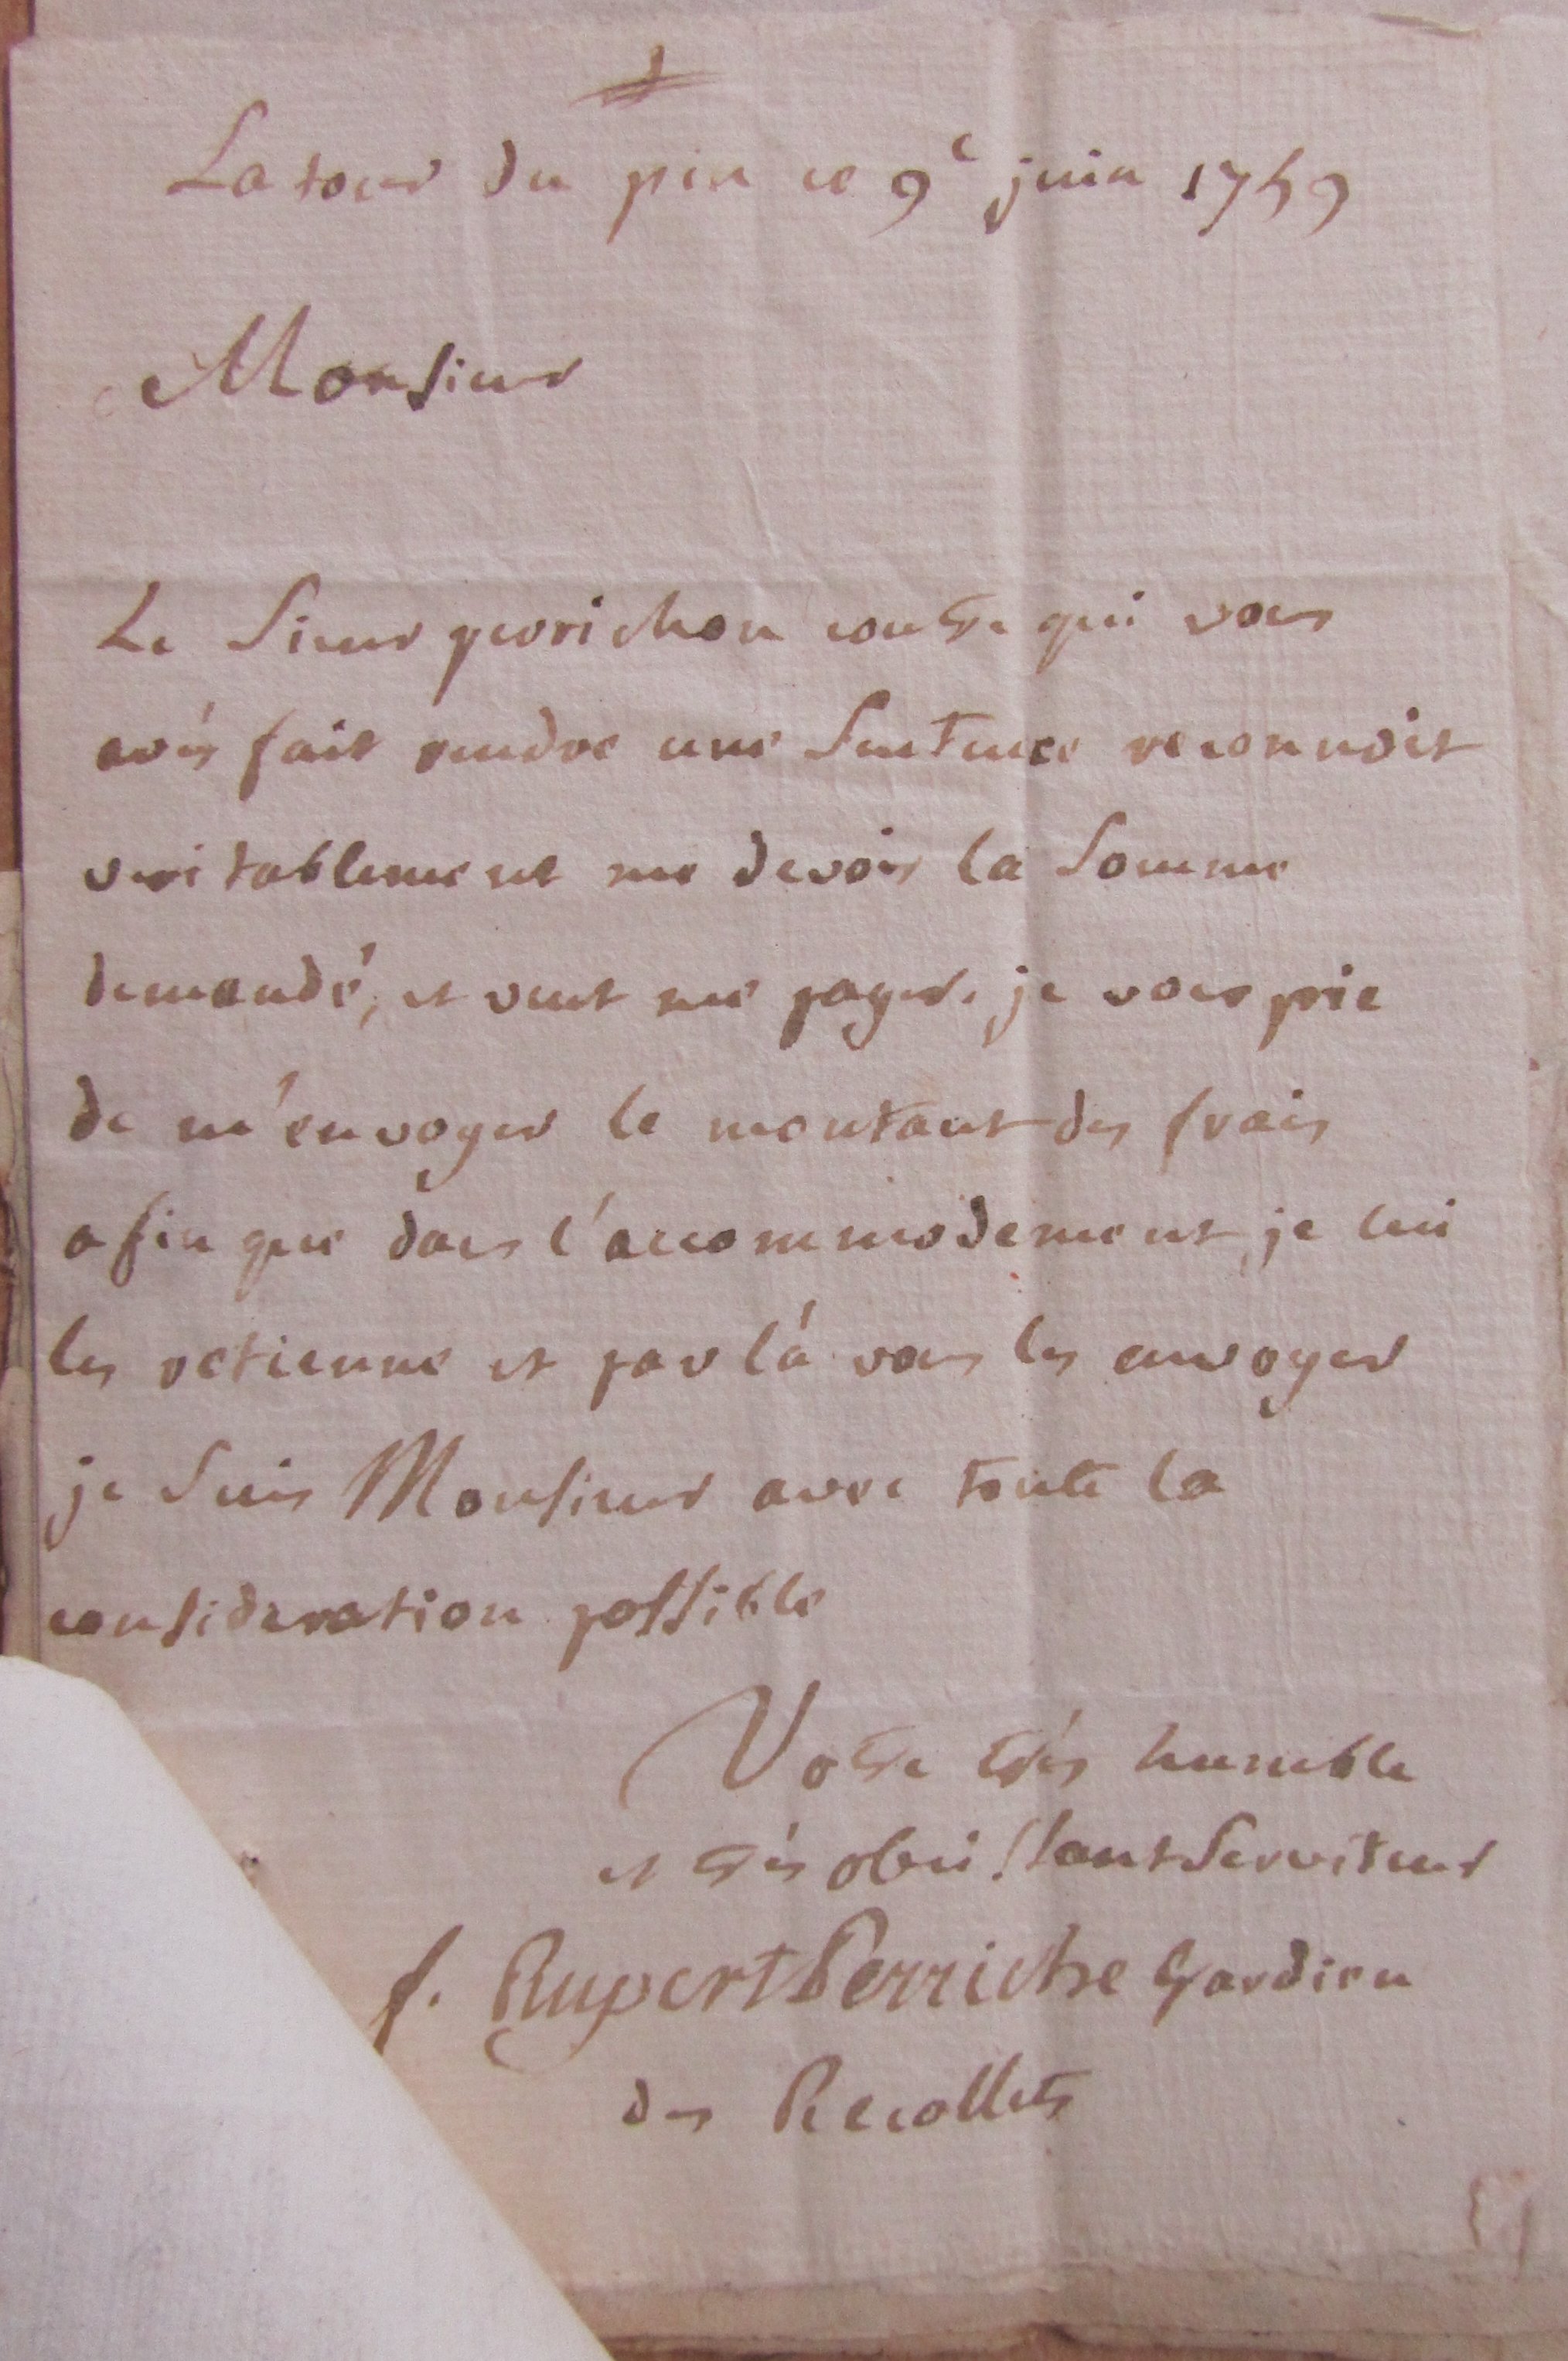 La tour du pin ce 9e juin 1759
Monsieur
Le Sieur perrichon contre qui vous
avés fait rendre une Sentence reconnoit
veritablement me devoir la Somme
demandé, et veut me payer. je vous prie
de m'envoyer le montant des frais
afin que dans l'accommodement, je lui
les retienne et par là vous les envoyer
je Suis Monsieur avec toute la
consideration possible
Votre trés humble
et trés obeissant Serviteur
f. Rupert Perriche Gardien
des Recollets